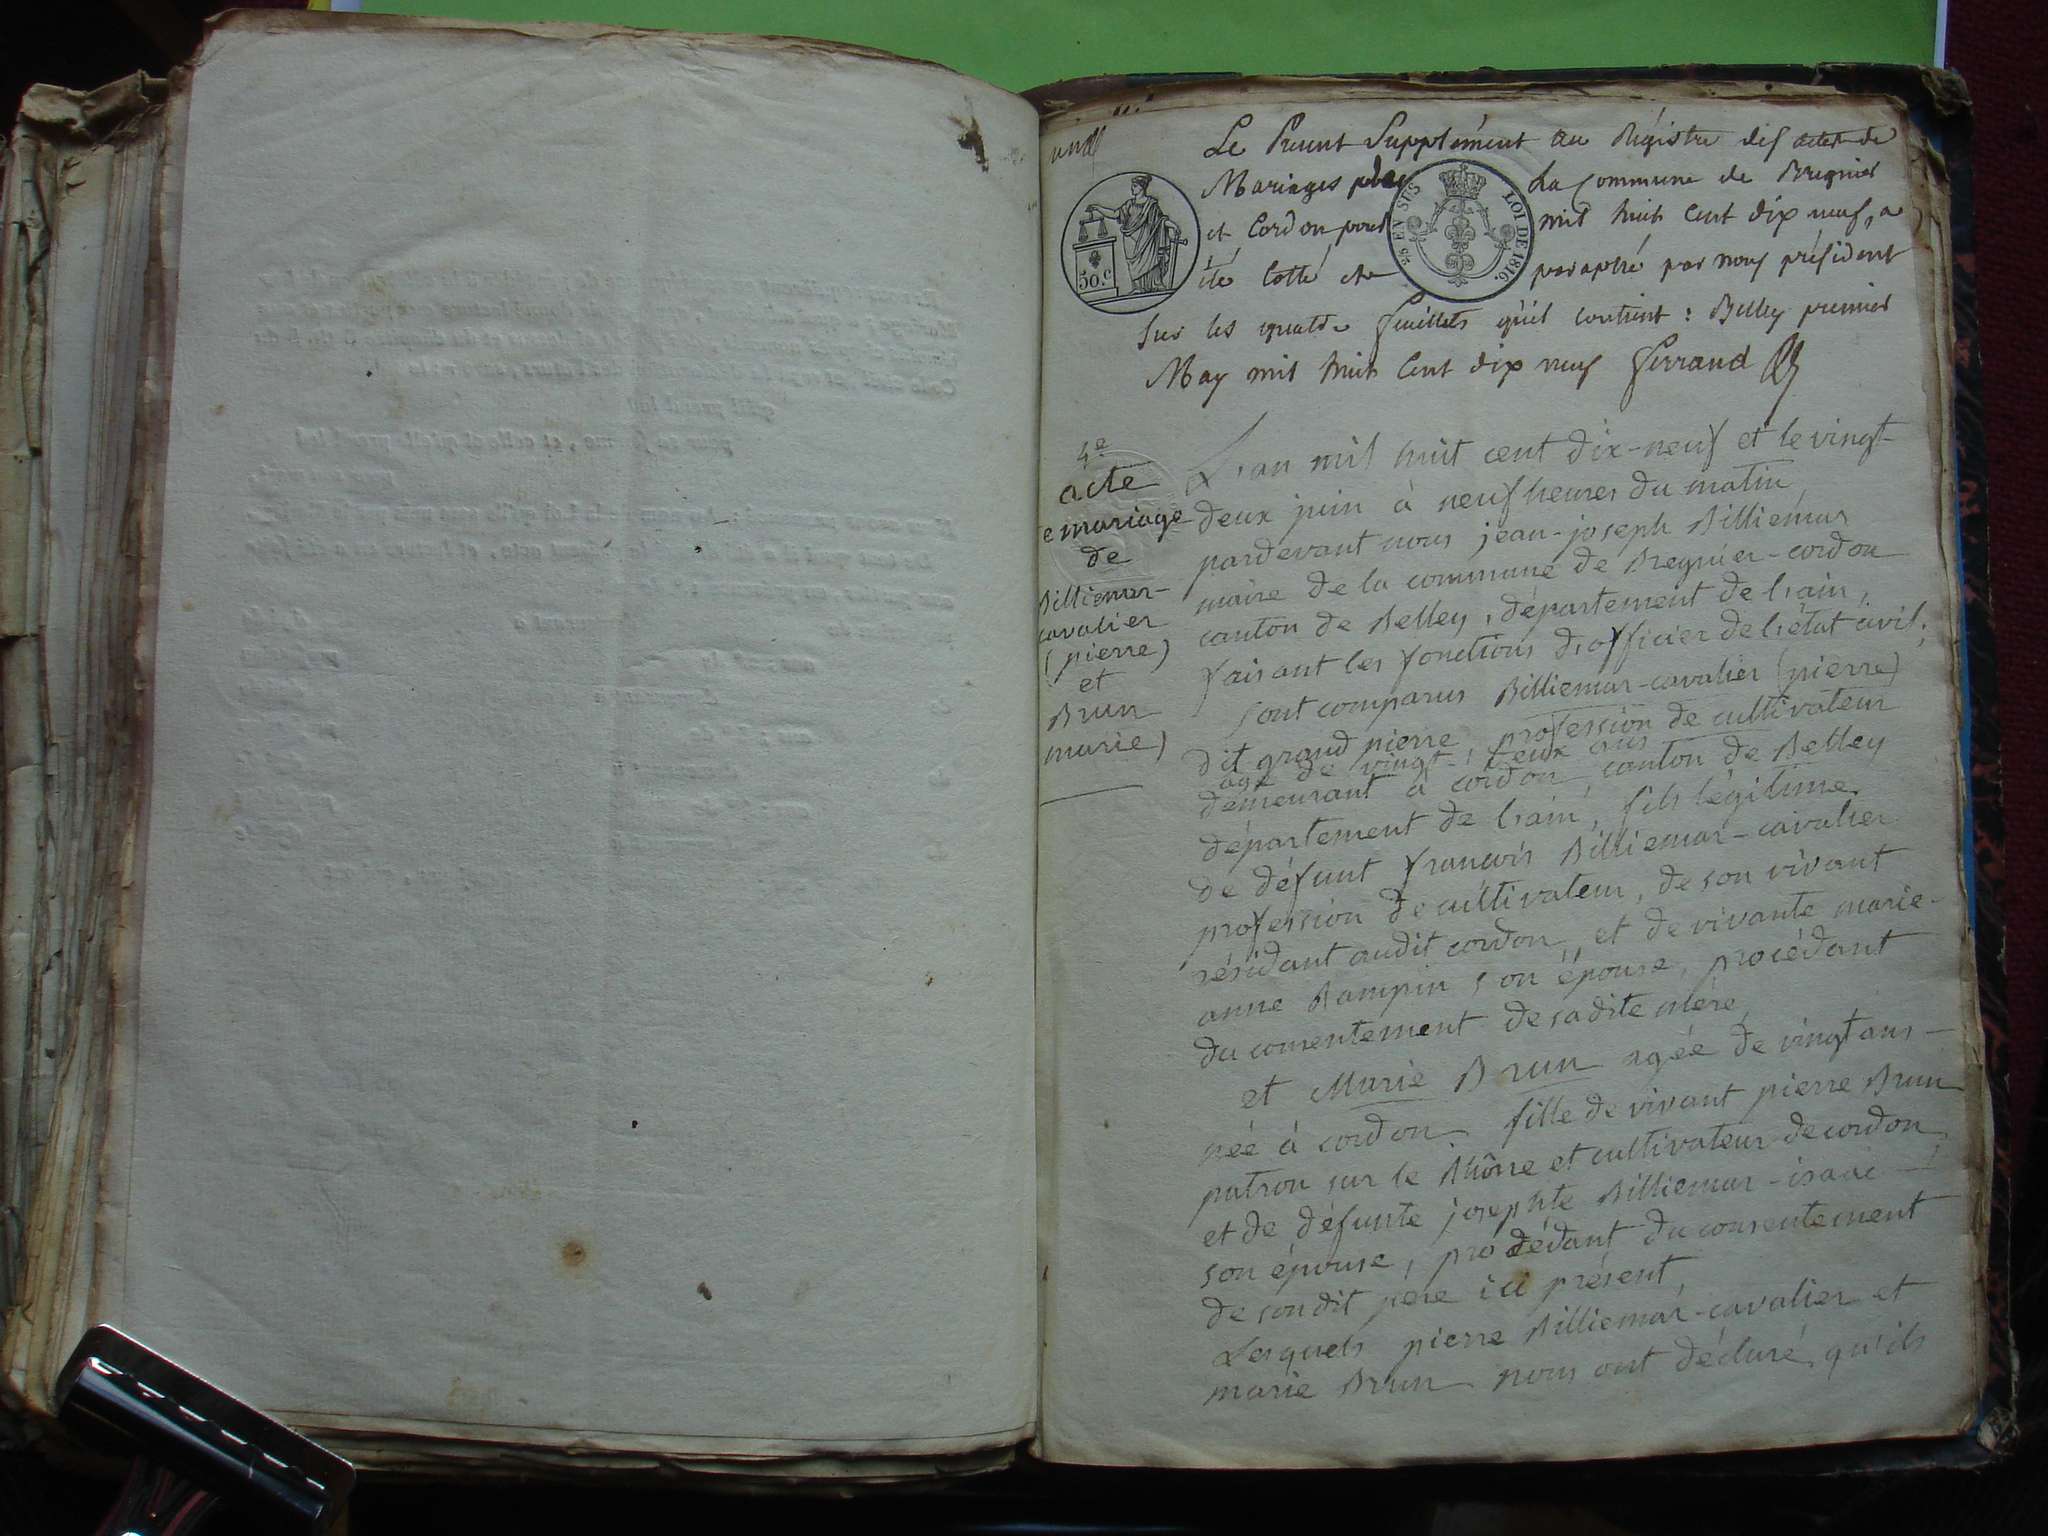 Le présent Supplément au Régistre des actes de
Mariages pour la Commune de Bregnier
et Cordon pour mil huit cent dix neuf, a
été Cotté et paraphé par nous président
Sur les quatre feuillets qu'il contient : Belley premier
May mil huit Cent dix neuf Ferrand
50.c
25 EN SUS
LOI DE 1816.
4e
acte
e mariage
de
Billiemar-
cavalier
(pierre)
et
Brun
marie)
L'an mil huit cent dix-neuf et le vingt-
deux juin à neuf heures du matin
pardevant nous jean-joseph Billiemar
maire de la commune de Bregnier-cordon
canton de Belley, département de l'ain,
faisant les fonctions d'officier de l'état civil;
sont comparus Billiemar-cavalier (pierre)
dit grand pierre, profession de cultivateur
agé de vingt-deux ans
demeurant à cordon, canton de Belley
département de l'ain, fils légitime
de défunt françois Billiemar-cavalier
profession de cultivateur, de son vivant
résidant audit cordon, et de vivante marie-
anne Rampin son épouse, procédant
du consentement de sadite mère,
et Marie Brun agée de vingt ans-
née à cordon fille de vivant pierre Brun
patron sur le Rhône et cultivateur de cordon
et de défunte josephte Billiemar-isaac
son épouse, procédant du consentement
de sondit pere ici présent,
Lesquels pierre Billiemar-cavalier et
marie Brun nous ont déclaré qu'ils